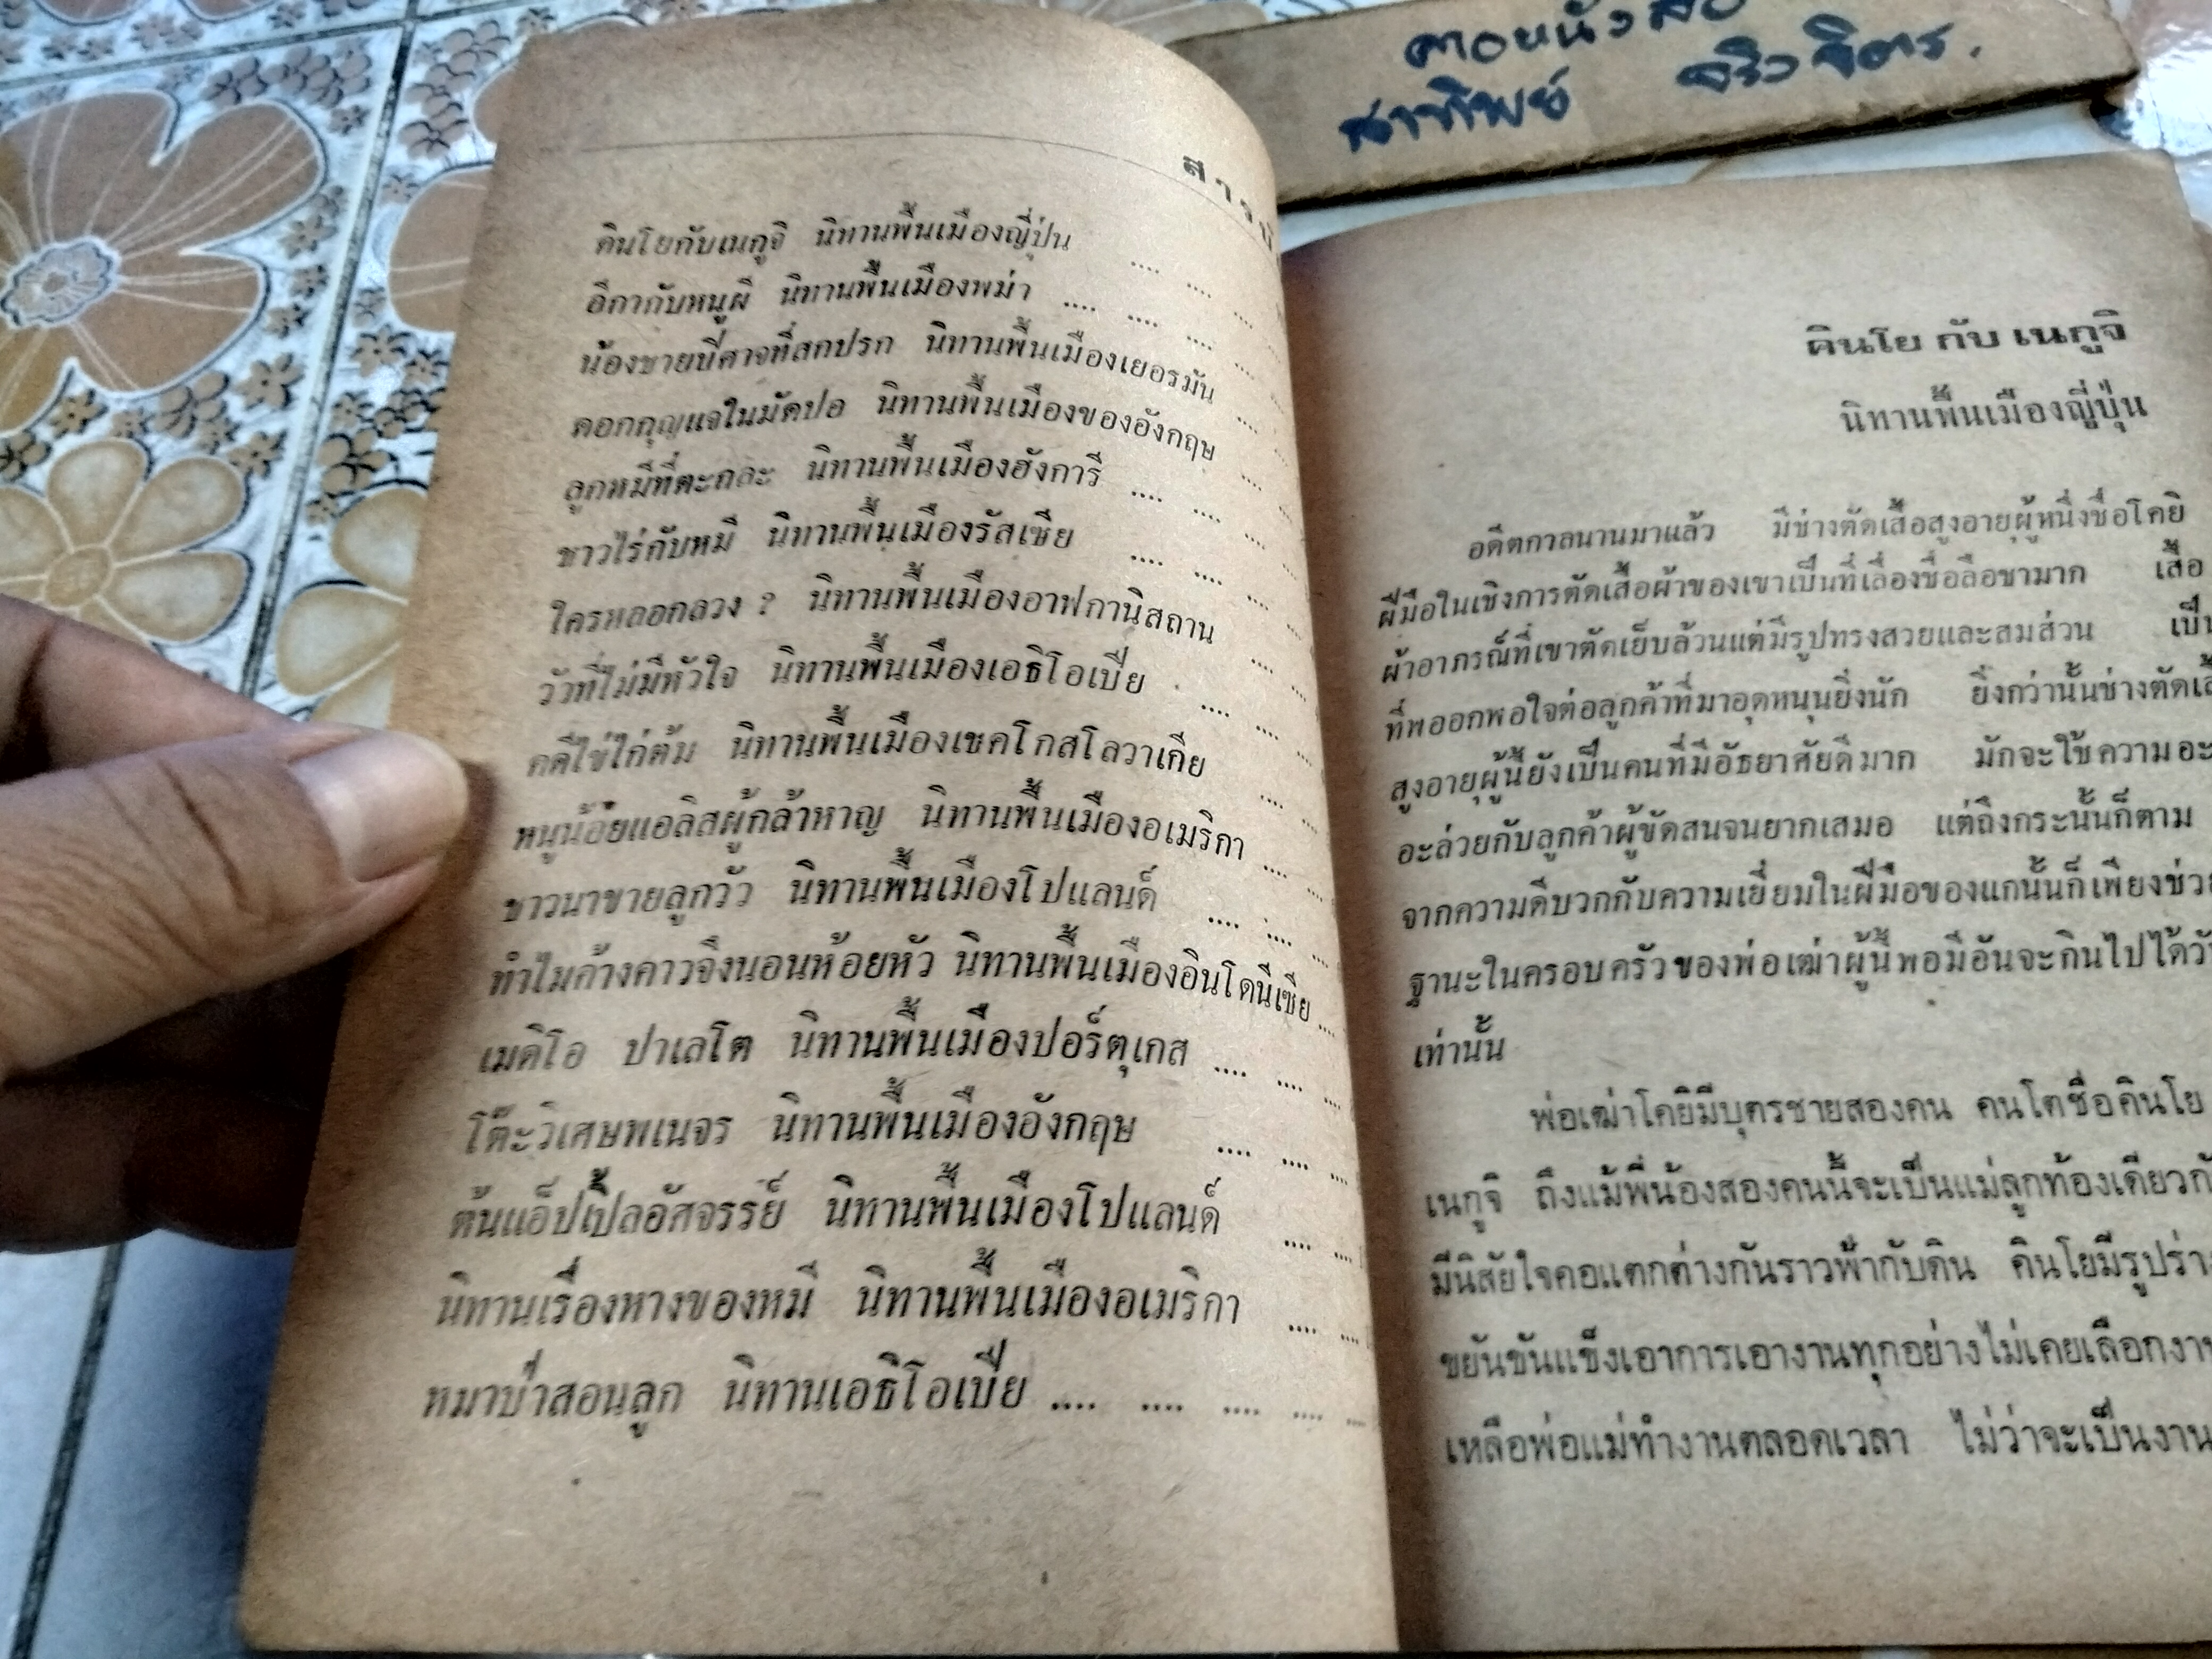 ดาอหนังสือ
สาทิพย์ จริวจิตร.
สารบั
คินโยกับเนกูจิ นิทานพื้นเมืองญี่ปุ่น .... ....
อีกากับหนูผี นิทานพื้นเมืองพม่า .... .... ....
น้องชายปีศาจที่สกปรก นิทานพื้นเมืองเยอรมัน ....
ดอกกุญแจในมัดปอ นิทานพื้นเมืองของอังกฤษ ....
ลูกหมีที่ตะกละ นิทานพื้นเมืองฮังการี .... ....
ชาวไร่กับหมี นิทานพื้นเมืองรัสเซีย .... .... ....
ใครหลอกลวง ? นิทานพื้นเมืองอาฟกานิสถาน ....
วัวที่ไม่มีหัวใจ นิทานพื้นเมืองเอธิโอเปีย .... ....
คดีไข่ไก่ต้ม นิทานพื้นเมืองเชคโกสโลวาเกีย ....
หนูน้อยแอลิสผู้กล้าหาญ นิทานพื้นเมืองอเมริกา .... ....
ชาวนาขายลูกวัว นิทานพื้นเมืองโปแลนด์ .... .... ....
ทำไมค้างคาวจึงนอนห้อยหัว นิทานพื้นเมืองอินโดนีเซีย ....
เมดิโอ ปาเลโต นิทานพื้นเมืองปอร์ตุเกส .... .... ....
โต๊ะวิเศษพเนจร นิทานพื้นเมืองอังกฤษ .... .... ....
ต้นแอ็ปเปิ้ลอัศจรรย์ นิทานพื้นเมืองโปแลนด์ .... ....
นิทานเรื่องหางของหมี นิทานพื้นเมืองอเมริกา .... ....
หมาป่าสอนลูก นิทานเอธิโอเปีย .... .... .... .... ....
คินโย กับ เนกูจิ
นิทานพื้นเมืองญี่ปุ่น
อดีตกาลนานมาแล้ว มีช่างตัดเสื้อสูงอายุผู้หนึ่งชื่อโคยิ
ฝีมือในเชิงการตัดเสื้อผ้าของเขาเป็นที่เลื่องชื่อลือชามาก เสื้อ
ผ้าอาภรณ์ที่เขาตัดเย็บล้วนแต่มีรูปทรงสวยและสมส่วน เป็น
ที่พออกพอใจต่อลูกค้าที่มาอุดหนุนยิ่งนัก ยิ่งกว่านั้นช่างตัดเสื้
สูงอายุผู้นี้ยังเป็นคนที่มีอัธยาศัยดีมาก มักจะใช้ความอะ
อะล่วยกับลูกค้าผู้ขัดสนจนยากเสมอ แต่ถึงกระนั้นก็ตาม
จากความดีบวกกับความเยี่ยมในฝีมือของแกนั้นก็เพียงช่วย
ฐานะในครอบครัวของพ่อเฒ่าผู้นี้พอมีอันจะกินไปได้วั
เท่านั้น
พ่อเฒ่าโคยิมีบุตรชายสองคน คนโตชื่อคินโย
เนกูจิ ถึงแม้พี่น้องสองคนนี้จะเป็นแม่ลูกท้องเดียวกั
มีนิสัยใจคอแตกต่างกันราวฟ้ากับดิน คินโยมีรูปร่า
ขยันขันแข็งเอาการเอางานทุกอย่างไม่เคยเลือกงา
เหลือพ่อแม่ทำงานตลอดเวลา ไม่ว่าจะเป็นงาน